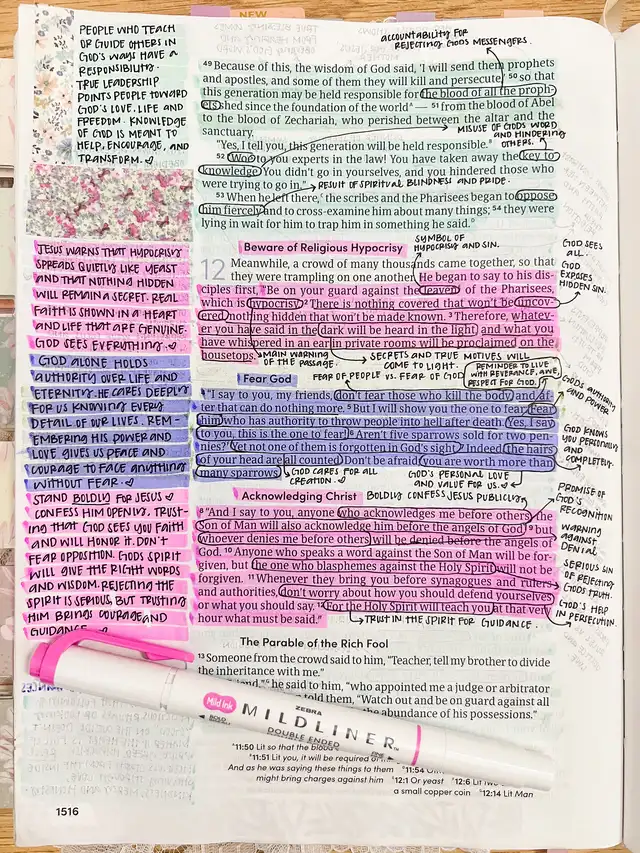 NEW
PEOPLE WHO TEACH
OR GUIDE OTHERS IN
GOD'S WAYS HAVE A
RESPONSIBILITY.
TRUE LEADERSHIP
POINTS PEOPLE TOWARD
GOD'S LOVE, LIFE AND
FREEDOM. KNOWLEDGE
OF GOD IS MEANT TO
HELP, ENCOURAGE, AND
TRANSFORM.
JESUS WARNS THAT HYPOCRISY
SPREADS QUIETLY LIKE YEAST
AND THAT NOTHING HIDDEN
WILL REMAIN A SECRET. REAL
FAITH IS SHOWN IN A HEART
AND LIFE THAT ARE GENUINE.
GOD SEES EVERYTHING.
GOD ALONE HOLDS
AUTHORITY OVER LIFE AND
ETERNITY. HE CARES DEEPLY
FOR US KNOWING EVERY
DETAIL OF OUR LIVES. REM-
EMBERING HIS POWER AND
LOVE GIVES US PEACE AND
COURAGE TO FACE ANYTHING
WITHOUT FEAR.
STAND BOLDLY FOR JESUS
CONFESS HIM OPENING, TRUST-
ING THAT GOD SEES YOU FAITH
AND WILL HONOR IT. DON'T
FEAR OPPOSITION. GODS SPIRIT
WILL GIVE THE RIGHT WORDS
AND WISDOM. REJECTING THE
SPIRIT IS SERIOUS, BUT TRUSTING
HIM BRINGS COURAGE AND
GUIDANCE.
ACCOUNTABILITY FOR
REJECTING GODS MESSENGERS.
49 Because of this, the wisdom of God said, 'I will send them prophets
and apostles, and some of them they will kill and persecute,' 50 so that
this generation may be held responsible for the blood of all the proph-
ets shed since the foundation of the world — 51 from the blood of Abel
to the blood of Zechariah, who perished between the altar and the
sanctuary.
MISUSE OF GODS WORD
AND HINDERING
OTHERS.
"Yes, I tell you, this generation will be held responsible.
52 "Woe to you experts in the law! You have taken away the key to
knowledge. You didn't go in yourselves, and you hindered those who
were trying to go in."
RESULT OF SPIRITUAL BLINDNESS AND PRIDE.
53 When he left there, the scribes and the Pharisees began to oppose
him fiercely and to cross-examine him about many things; 54 they were
lying in wait for him to trap him in something he said.
Beware of Religious Hypocrisy
SYMBOL OF
HYPOCRISY AND SIN.
GOD SEES
ALL.
GOD
EXPOSES
HIDDEN SIN.
12 Meanwhile, a crowd of many thousands came together, so that
they were trampling on one another. He began to say to his dis-
ciples first, "Be on your guard against the leaven of the Pharisees,
which is hypocrisy. 2 There is nothing covered that won't be uncov-
ered, nothing hidden that won't be made known. 3 Therefore, whatev-
er you have said in the dark will be heard in the light, and what you
have whispered in an ear in private rooms will be proclaimed on the
housetops.
MAIN WARNING
OF THE PASSAGE.
SECRETS AND TRUE MOTIVES WILL
COME TO LIGHT.
FEAR OF PEOPLE VS. FEAR OF GOD
REMINDER TO LIVE
WITH REVERENCE, AWE,
RESPECT FOR GOD.
GODS AUTHORITY
AND POWER
Fear God
4 "I say to you, my friends, don't fear those who kill the body, and af-
ter that can do nothing more. 5 But I will show you the one to fear: Fear
him who has authority to throw people into hell after death. Yes, I say
to you, this is the one to fear! 6 Aren't five sparrows sold for two pen-
nies? Yet not one of them is forgotten in God's sight. 7 Indeed, the hairs
of your head are all counted. Don't be afraid; you are worth more than
many sparrows.
GOD KNOWS
YOU PERSONALLY
AND
COMPLETELY.
GOD CARES FOR ALL
CREATION.
GOD'S PERSONAL LOVE
AND VALUE FOR US.
Acknowledging Christ
BOLDLY CONFESS JESUS PUBLICLY
PROMISE OF
GOD'S
RECOGNITION
8 "And I say to you, anyone who acknowledges me before others, the
Son of Man will also acknowledge him before the angels of God, 9 but
whoever denies me before others will be denied before the angels of
God. 10 Anyone who speaks a word against the Son of Man will be for-
given, but the one who blasphemes against the Holy Spirit will not be
forgiven. 11 Whenever they bring you before synagogues and rulers
and authorities, don't worry about how you should defend yourselves
or what you should say. 12 For the Holy Spirit will teach you at that very
hour what must be said."
WARNING
AGAINST
DENIAL
SERIOUS SIN
OF REJECTING
GODS TRUTH.
GOD'S HELP
IN PERSECUTION.
TRUST IN THE SPIRIT FOR GUIDANCE.
The Parable of the Rich Fool
13 Someone from the crowd said to him, "Teacher, tell my brother to divide
the inheritance with me."
he said to him, "who appointed me a judge or arbitrator
told them, "Watch out and be on guard against all
the abundance of his possessions."
Mild Ink
ZEBRA
MILDLINER™
DOUBLE ENDED
BOLD
11:50 Lit so that the blood
11:51 Lit you, it will be required of
11:54
And as he was saying these things to them
might bring charges against him
12:1 Or yeast
12:6 Lit two
a small copper coin
12:14 Lit Man
1516